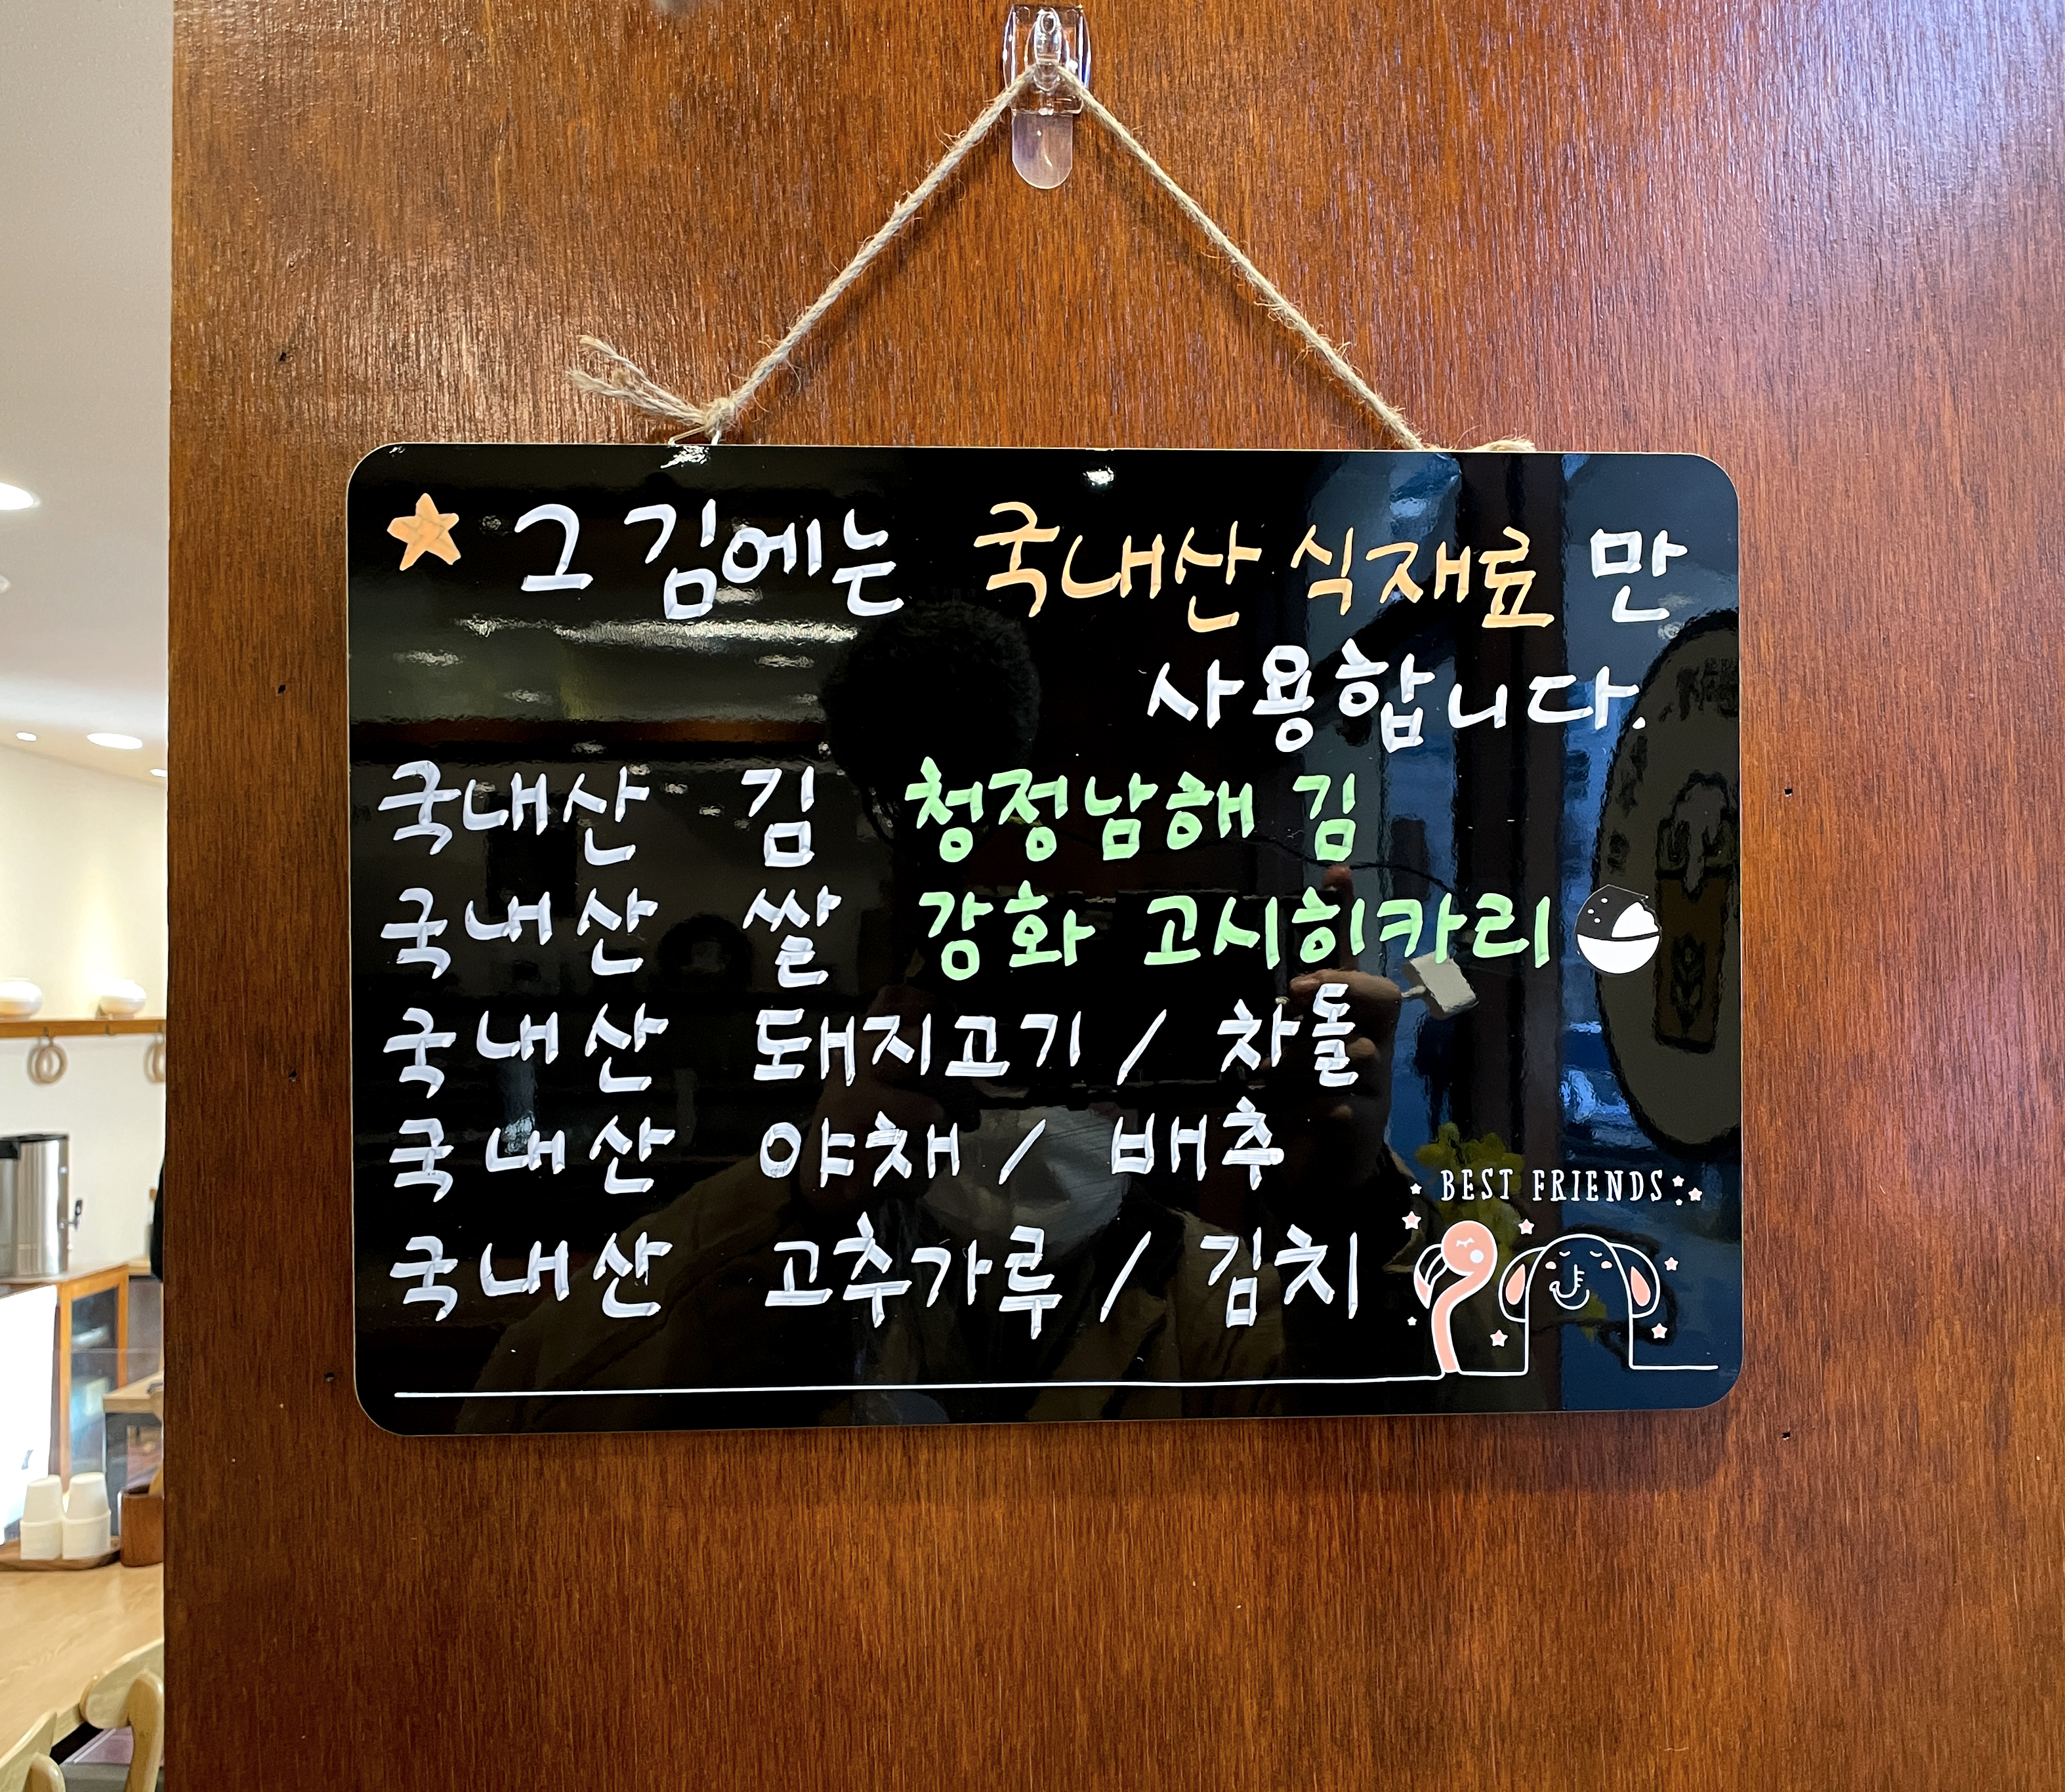 그 김에는 국내산 식재료 만
사용합니다.
국내산 김 청정남해 김
국내산 쌀 강화 고시히카리
국내산 돼지고기 / 차돌
국내산 야채 / 배추
국내산 고추가루 / 김치
BEST FRIENDS